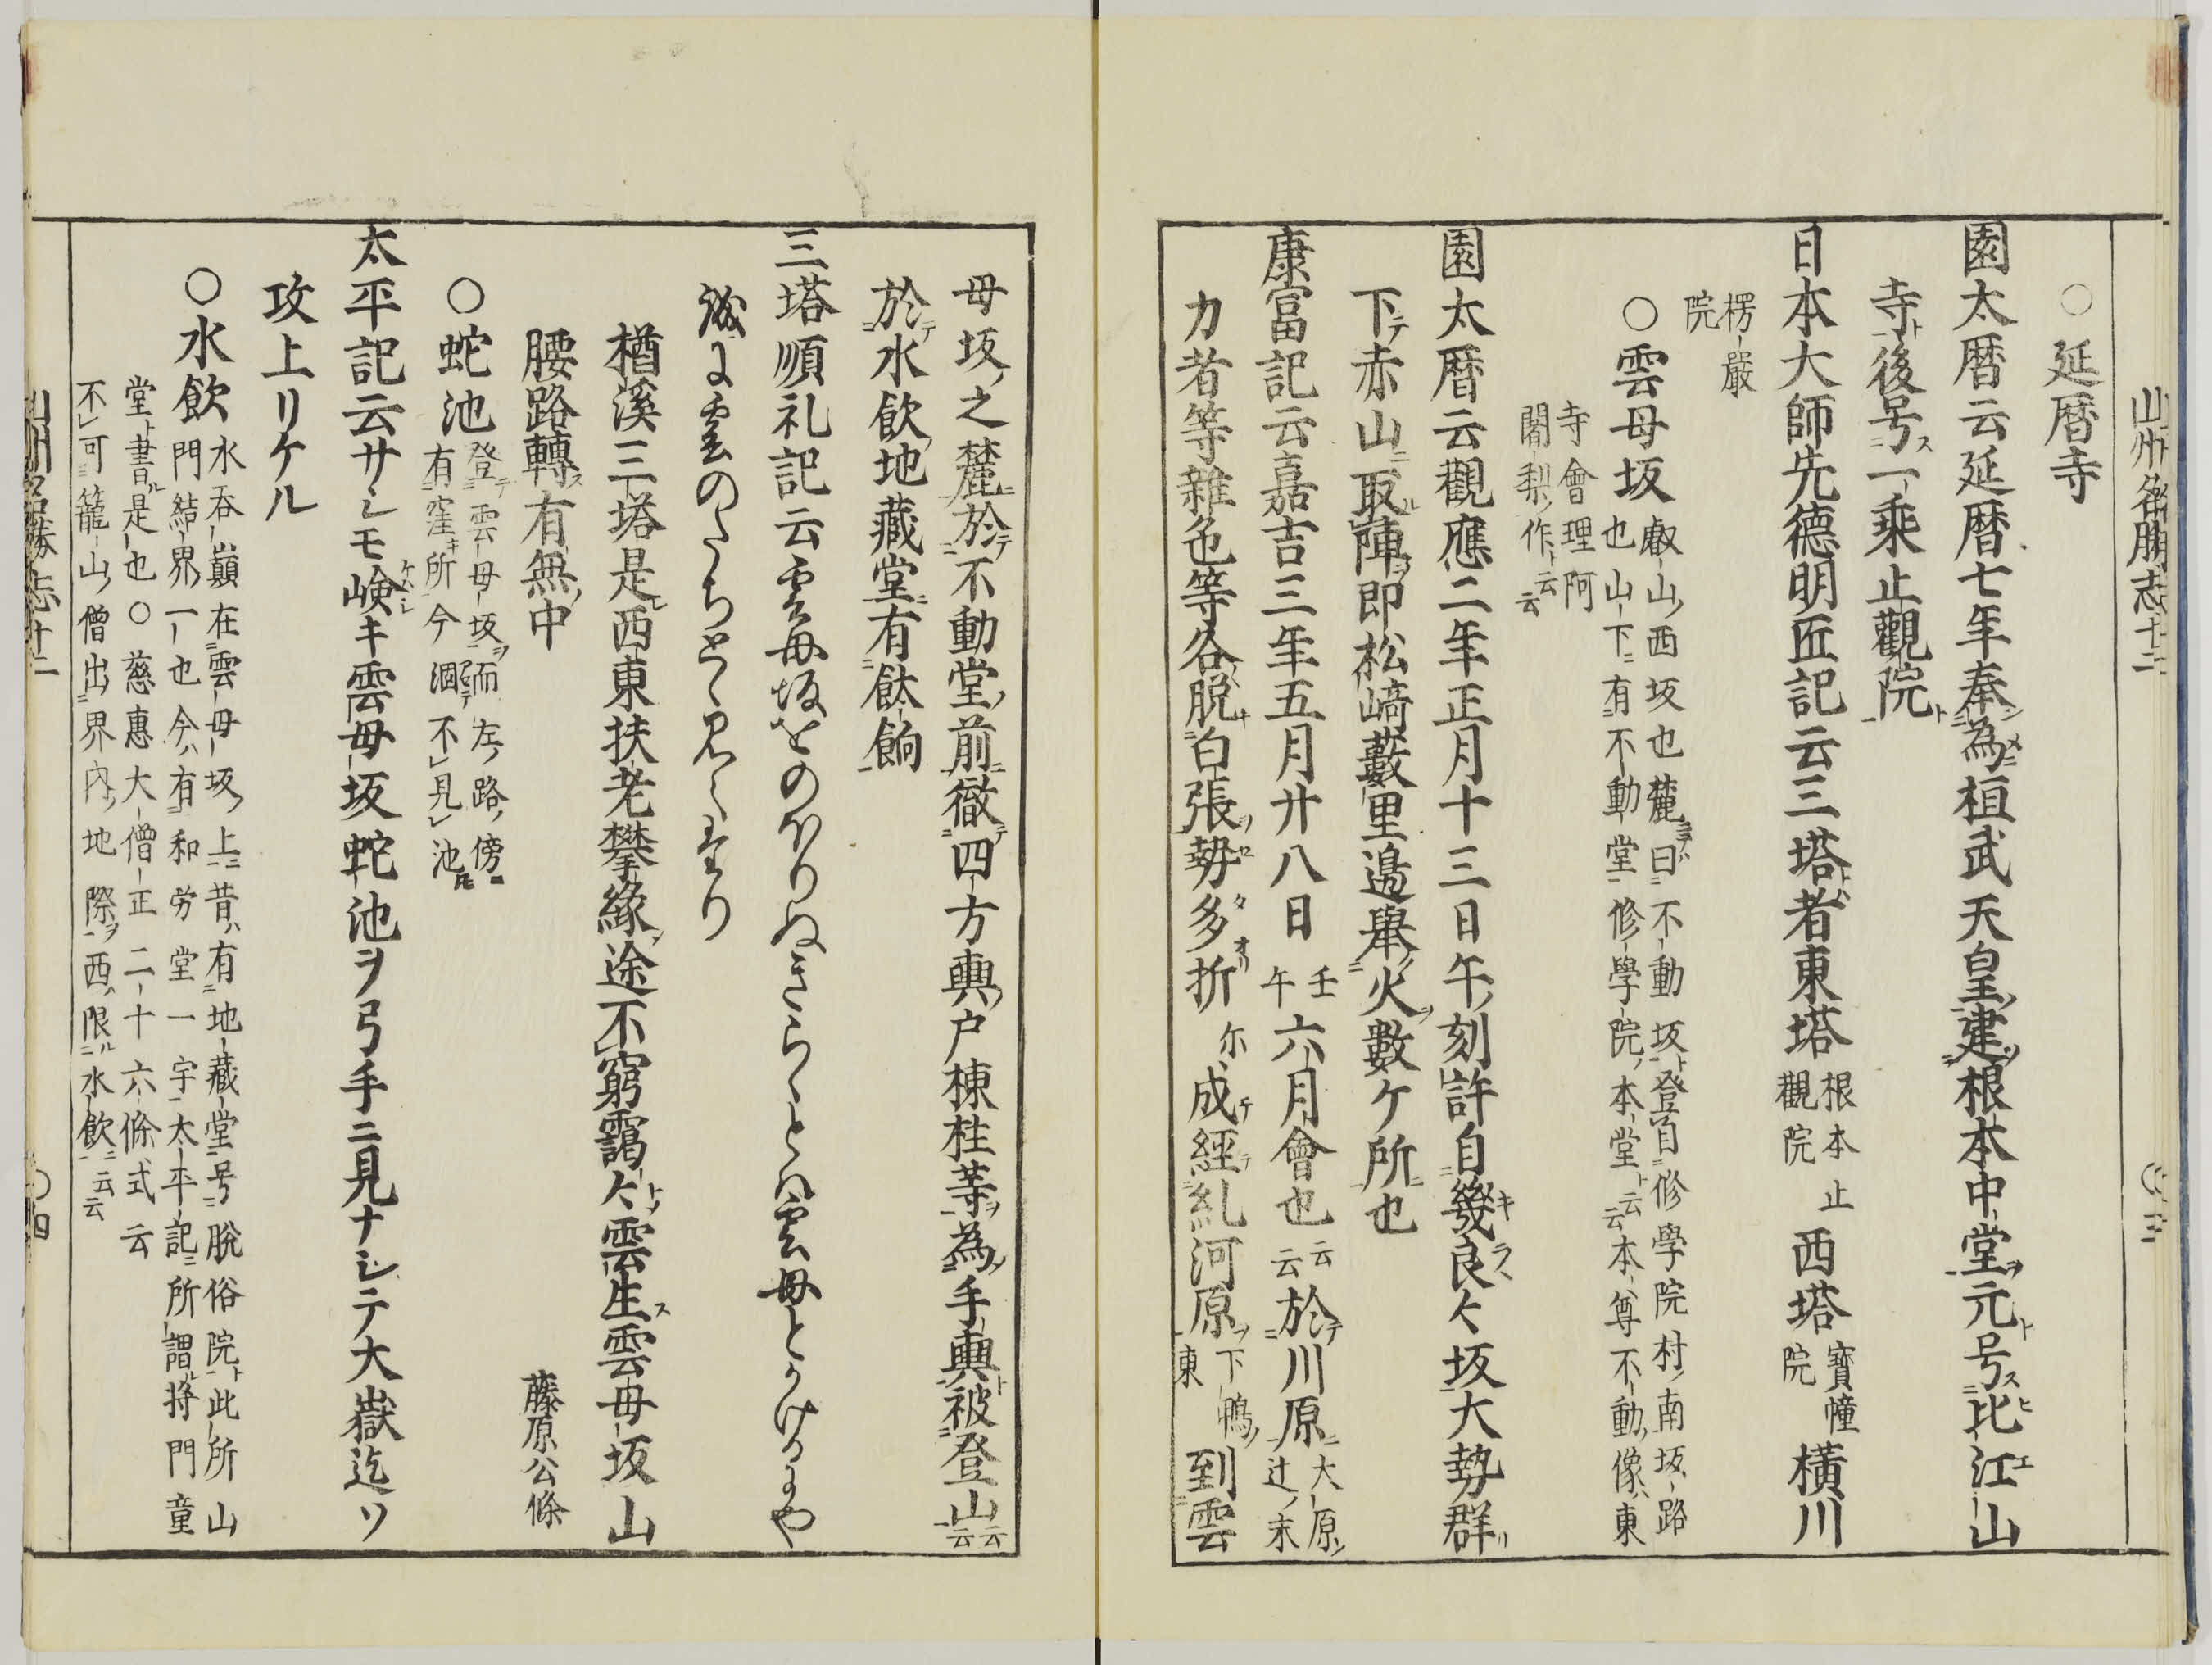 山州名勝志十二
○延暦寺
園太暦云延暦七年奉為桓武天皇建根本中堂元号比江山
寺後号一乘止觀院
日本大師先德明匠記云三塔者東塔根本止觀院西塔寶幢院橫川
楞嚴院
○雲母坂叡山西坂也麓曰不動坂登自修學院村南坂路
也山下有不動堂修學院本堂云云本尊不動像東
寺會理阿
闍梨作云云
園太暦云觀應二年正月十三日午刻許自幾良々坂大勢群
下赤山取陣即松﨑藪里邊舉火數ケ所也
康富記云嘉吉三年五月廿八日壬午六月會也云云於川原大原辻末
力者等雜色等各脱白張勢多折尓成經糺河原下鴨東到雲
母坂之麓於不動堂前徹四方輿户棟柱等為手輿被登山云云
於水飲地藏堂有䬪餉
三塔順礼記云雲母坂をのほりぬきらゝとハ雲母とかけるにや
誠に雲のたちとゝ見へまり
楢溪三塔是西東扶老攀緣途不窮靄々雲生雲母坂山
腰路轉有無中
藤原公條
○蛇池登雲母坂而左路傍
有窪所今涸不見池
太平記云サシモ嶮キ雲母坂蛇池ヲ弓手ニ見ナシテ大嶽迄ソ
攻上リケル
○水飲水呑巓在雲母坂上昔有地藏堂号脫俗院此所山
門結界一也今有和労堂一宇太平記所謂将門童
堂書是也○慈惠大僧正二十六條式云
不可籠山僧出界內地際西限水飲云云
山州名勝志十二